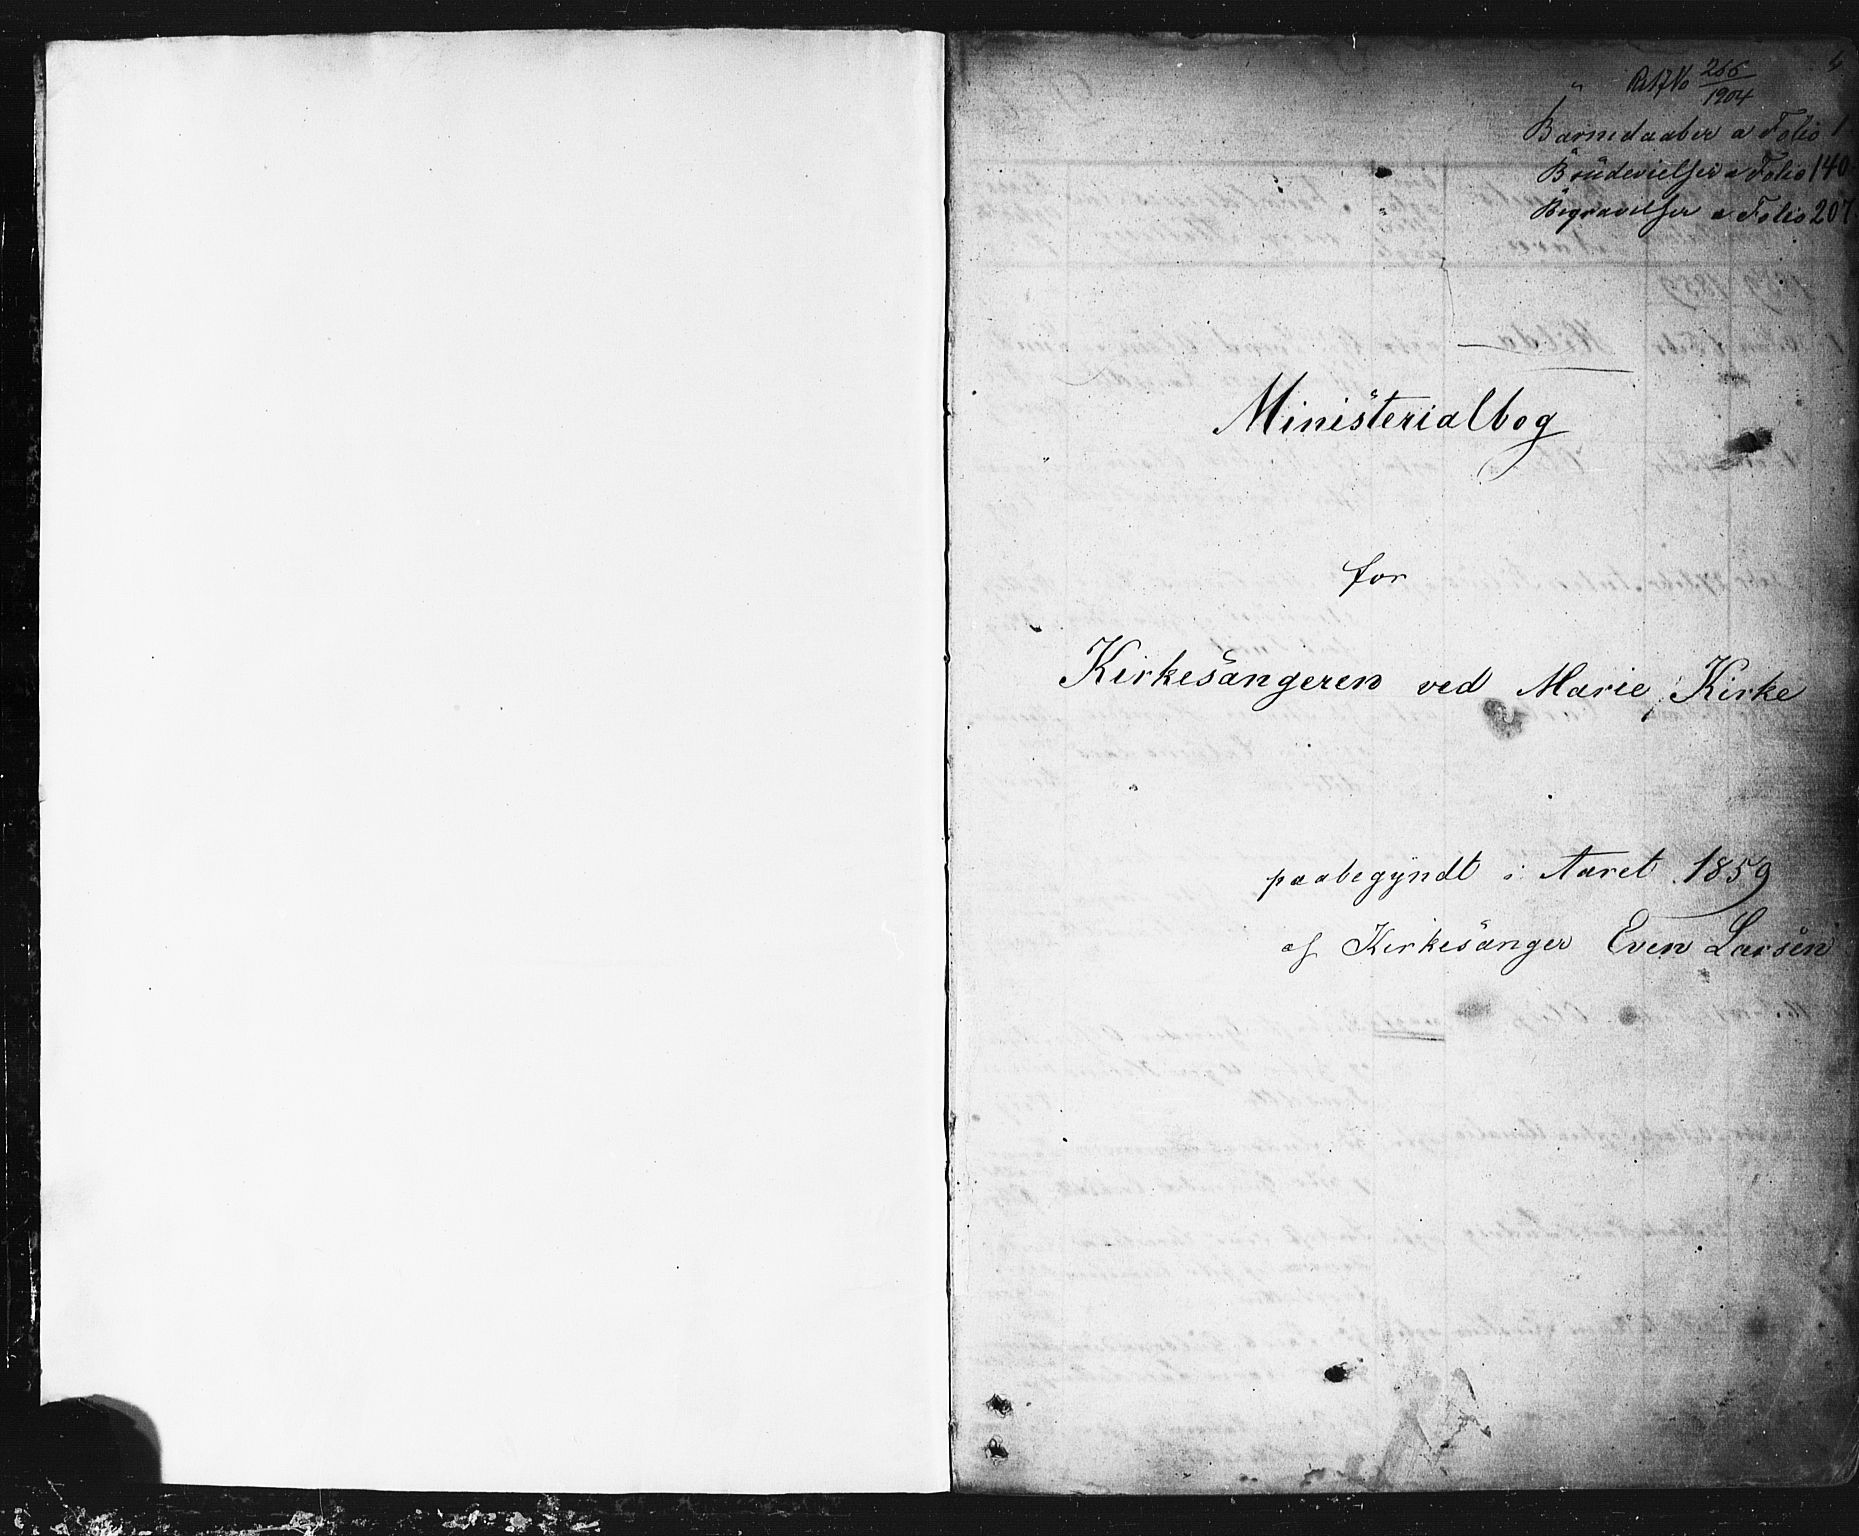 266
1904
Barnedaaber a Folio 1
Brudevielser a Folio 140
Begravelser a Folio 207
Ministerialbog
for
Kirkesangeren ved Marie Kirke
paabegyndt i Aaret 1859
af Kirkesanger Even Larsen